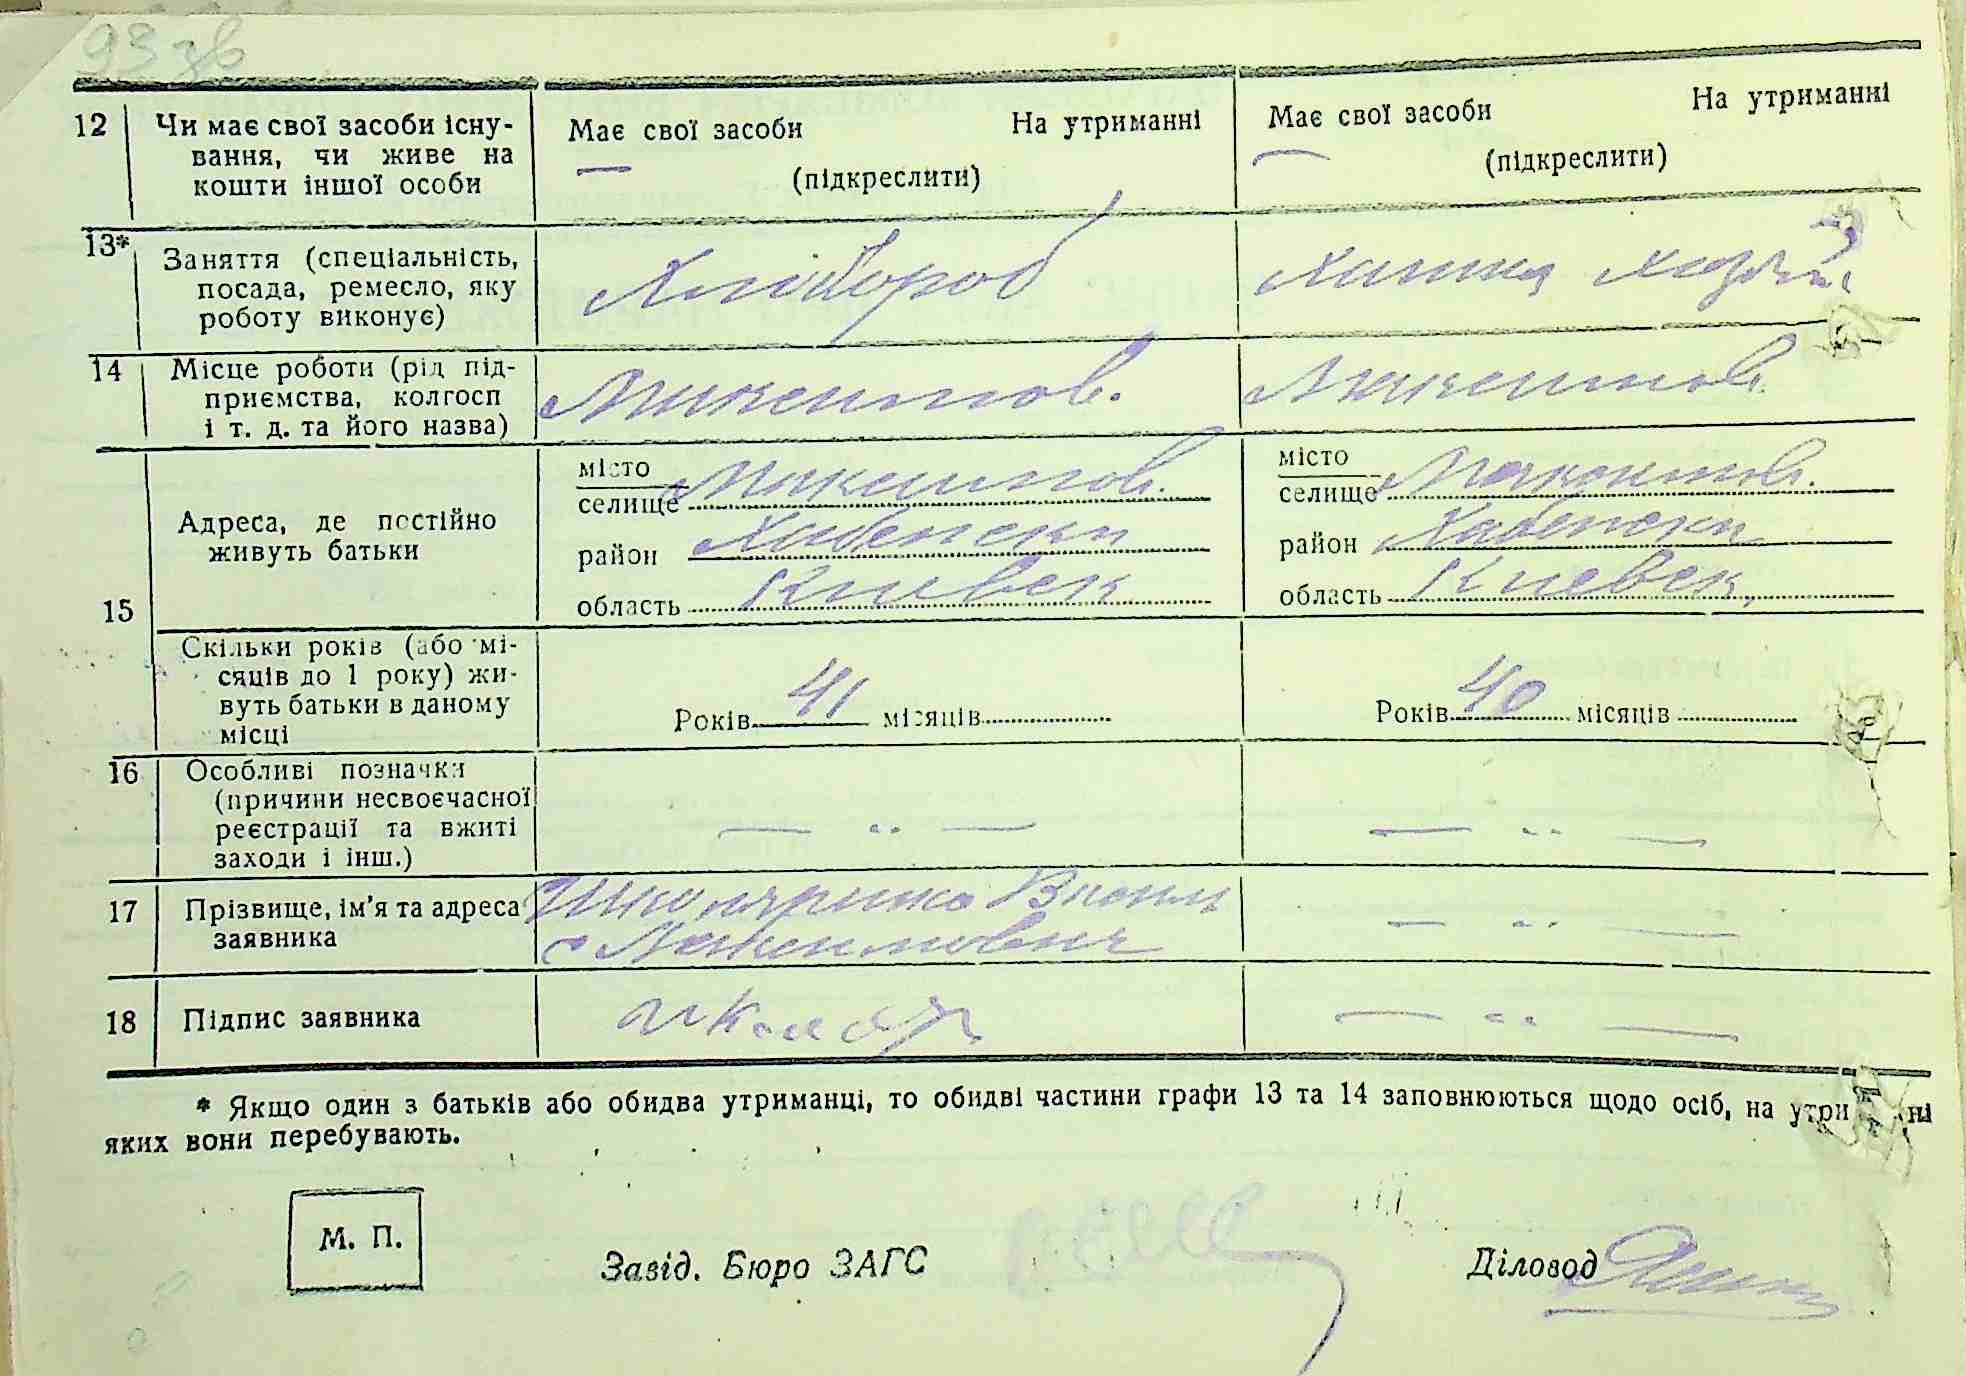 93 зв
12 Чи має свої засоби існу-
вання, чи живе на
кошти іншої особи
Має свої засоби На утриманні
(підкреслити)
Має свої засоби На утриманні
(підкреслити)
13* Заняття (спеціальність,
посада, ремесло, яку
роботу виконує)
Хлібороб
14 Місце роботи (рід під-
приємства, колгосп
і т. д. та його назва)
Максимов.
Максимов.
15 Адреса, де постійно
живуть батьки
місто
селище Максимов.
район Хабенски
область Киевск
місто
селище Максимов.
район Хабенски
область Киевск,
Скільки років (або мі-
сяців до 1 року) жи-
вуть батьки в даному
місці
Років 41 місяців
Років 40 місяців
16 Особливі позначки
(причини несвоєчасної
реєстрації та вжиті
заходи і інш.)
— „ —
— „ —
17 Прізвище, ім'я та адреса
заявника
Максимович
— „ —
18 Підпис заявника
— „ —
* Якщо один з батьків або обидва утриманці, то обидві частини графи 13 та 14 заповнюються щодо осіб, на
яких вони перебувають.
М. П.
Завід. Бюро ЗАГС
Діловод